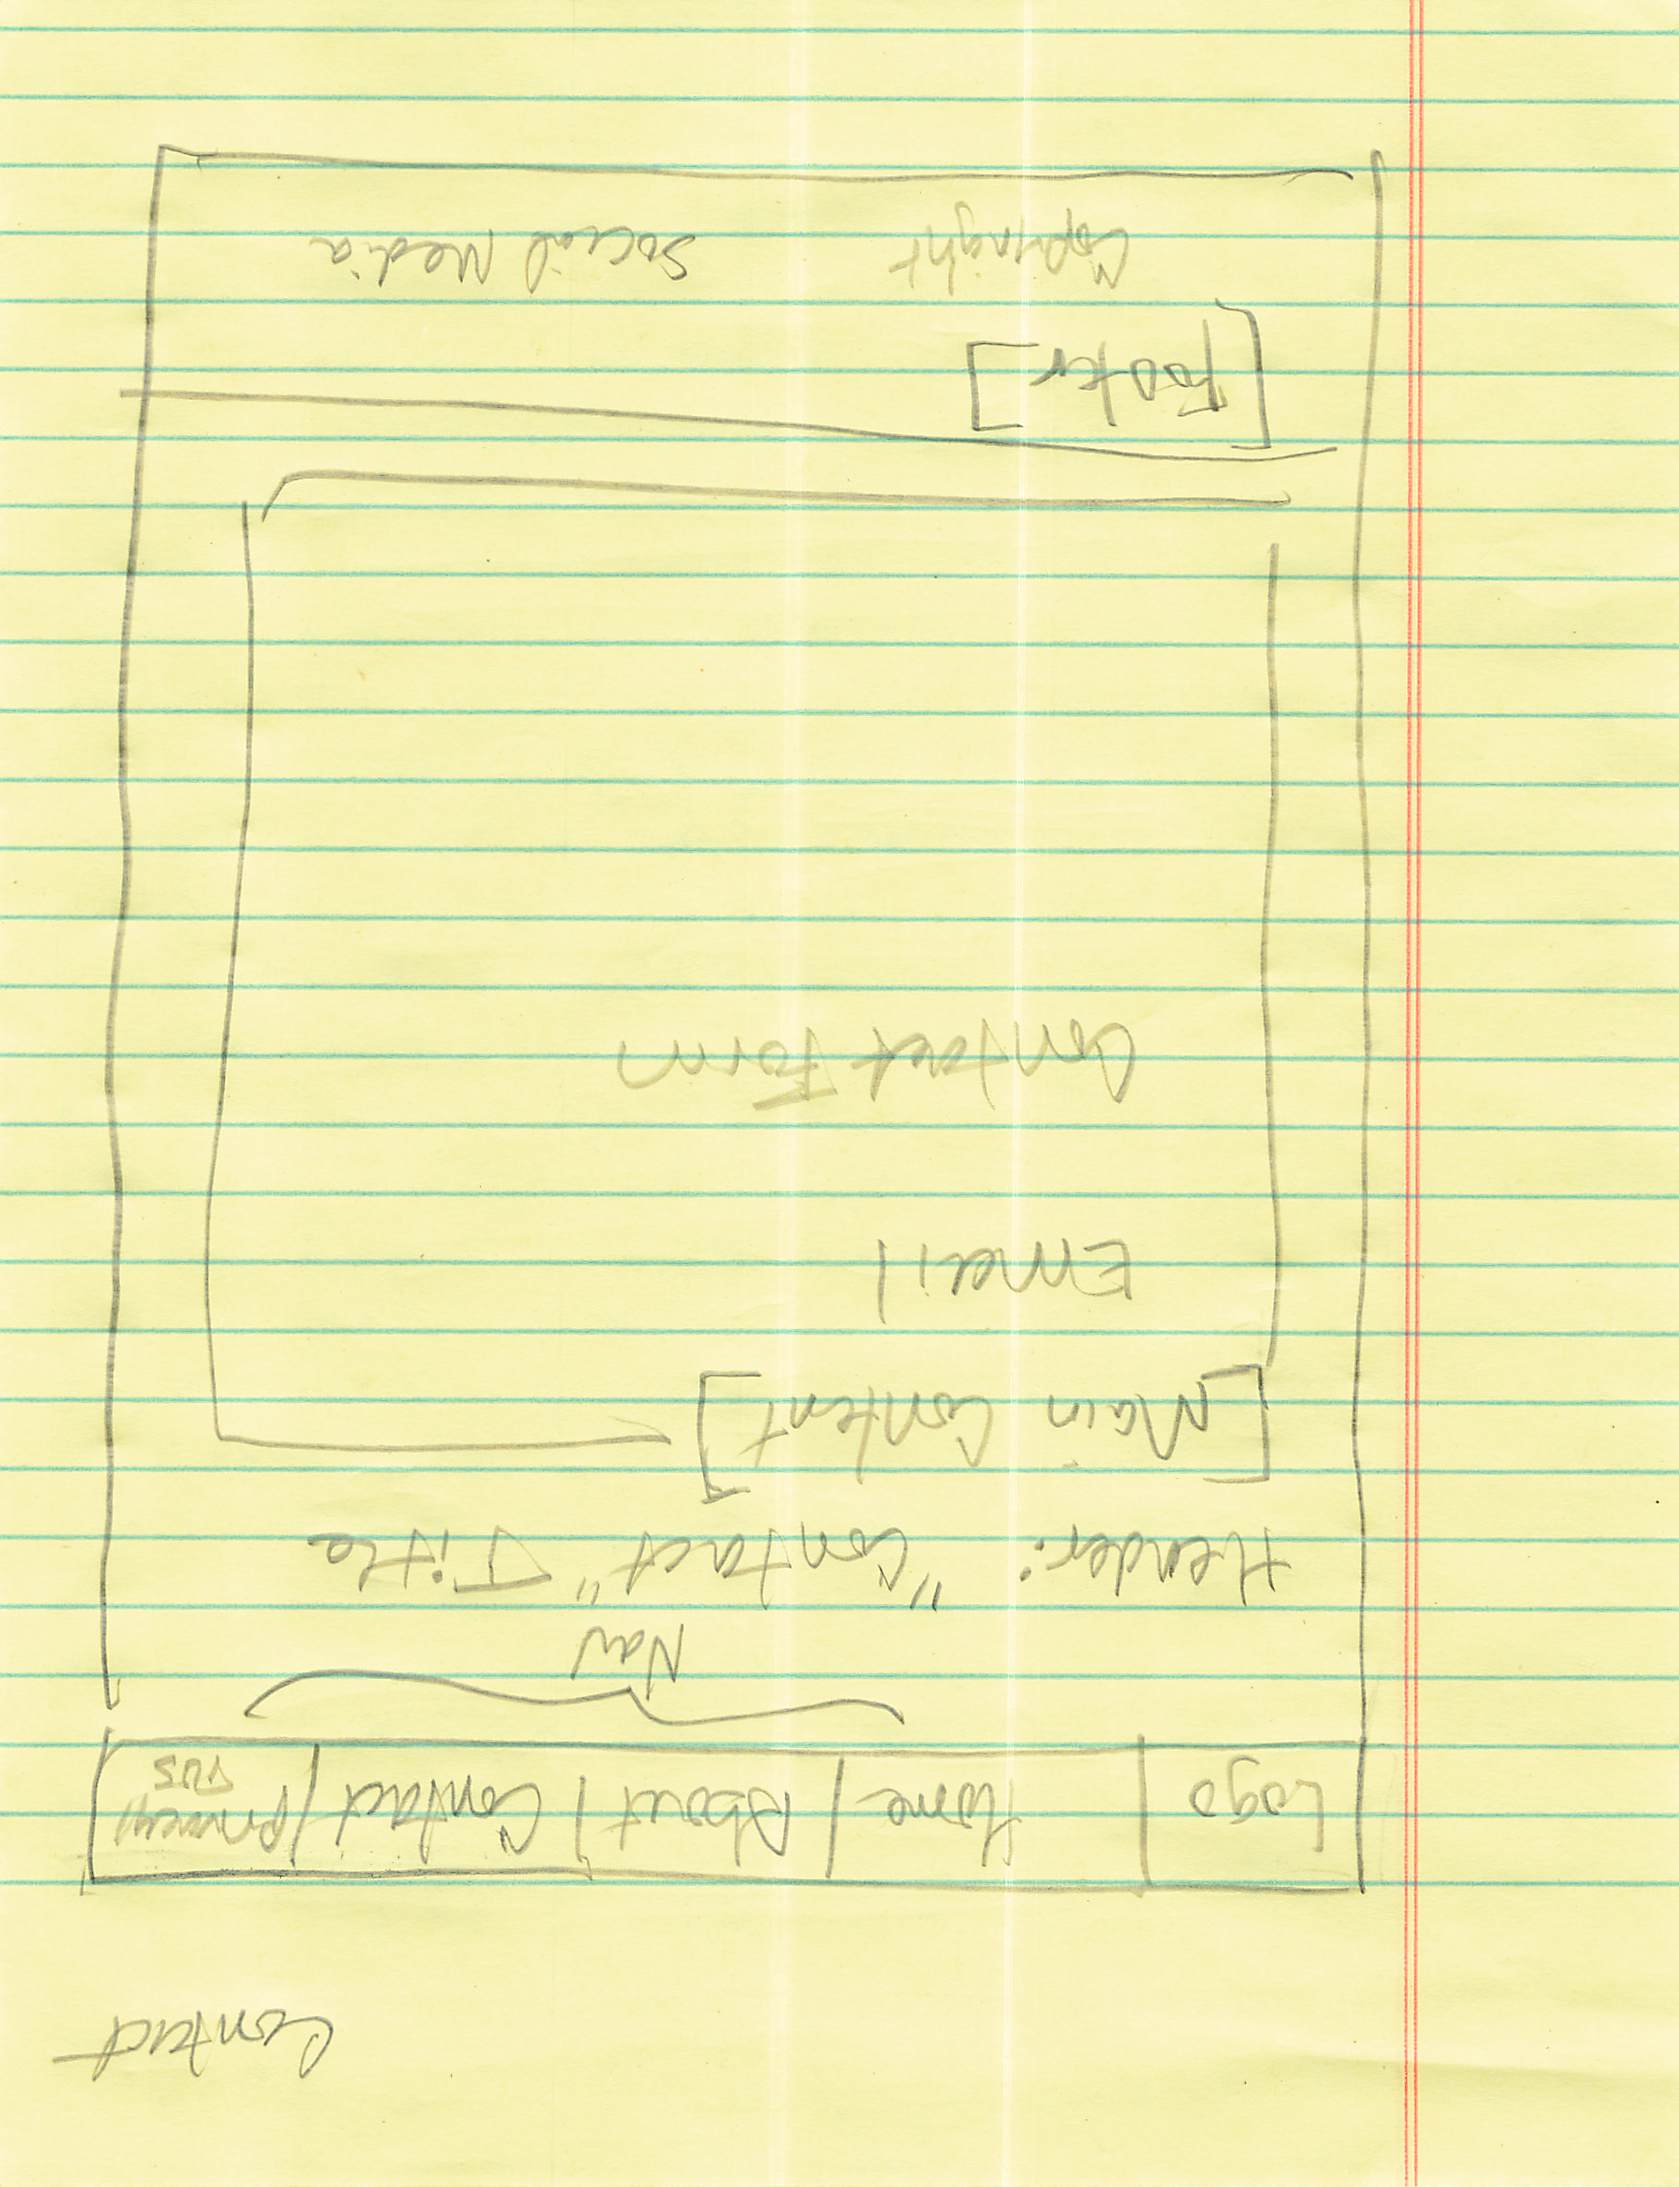 Contact
Logo Home About Contact Privacy/
TOS
Nav
Header: "Contact" Title
[Main Content]
Email
Contact Form
[Footer]
Copyright Social Media